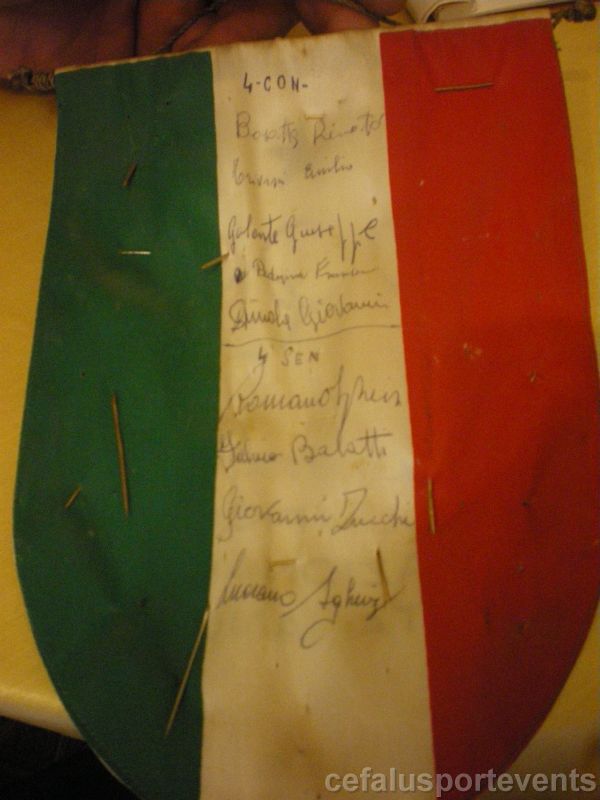 4-CON-
Bosatta Renato
Trivini Emilio
Galante Giuseppe
Franco
Dinola Giovanni
4 SEN
Romano Sgheiz
Fulvio Balatti
Giovanni Zucchi
Luciano Sgheiz
cefalusportevents